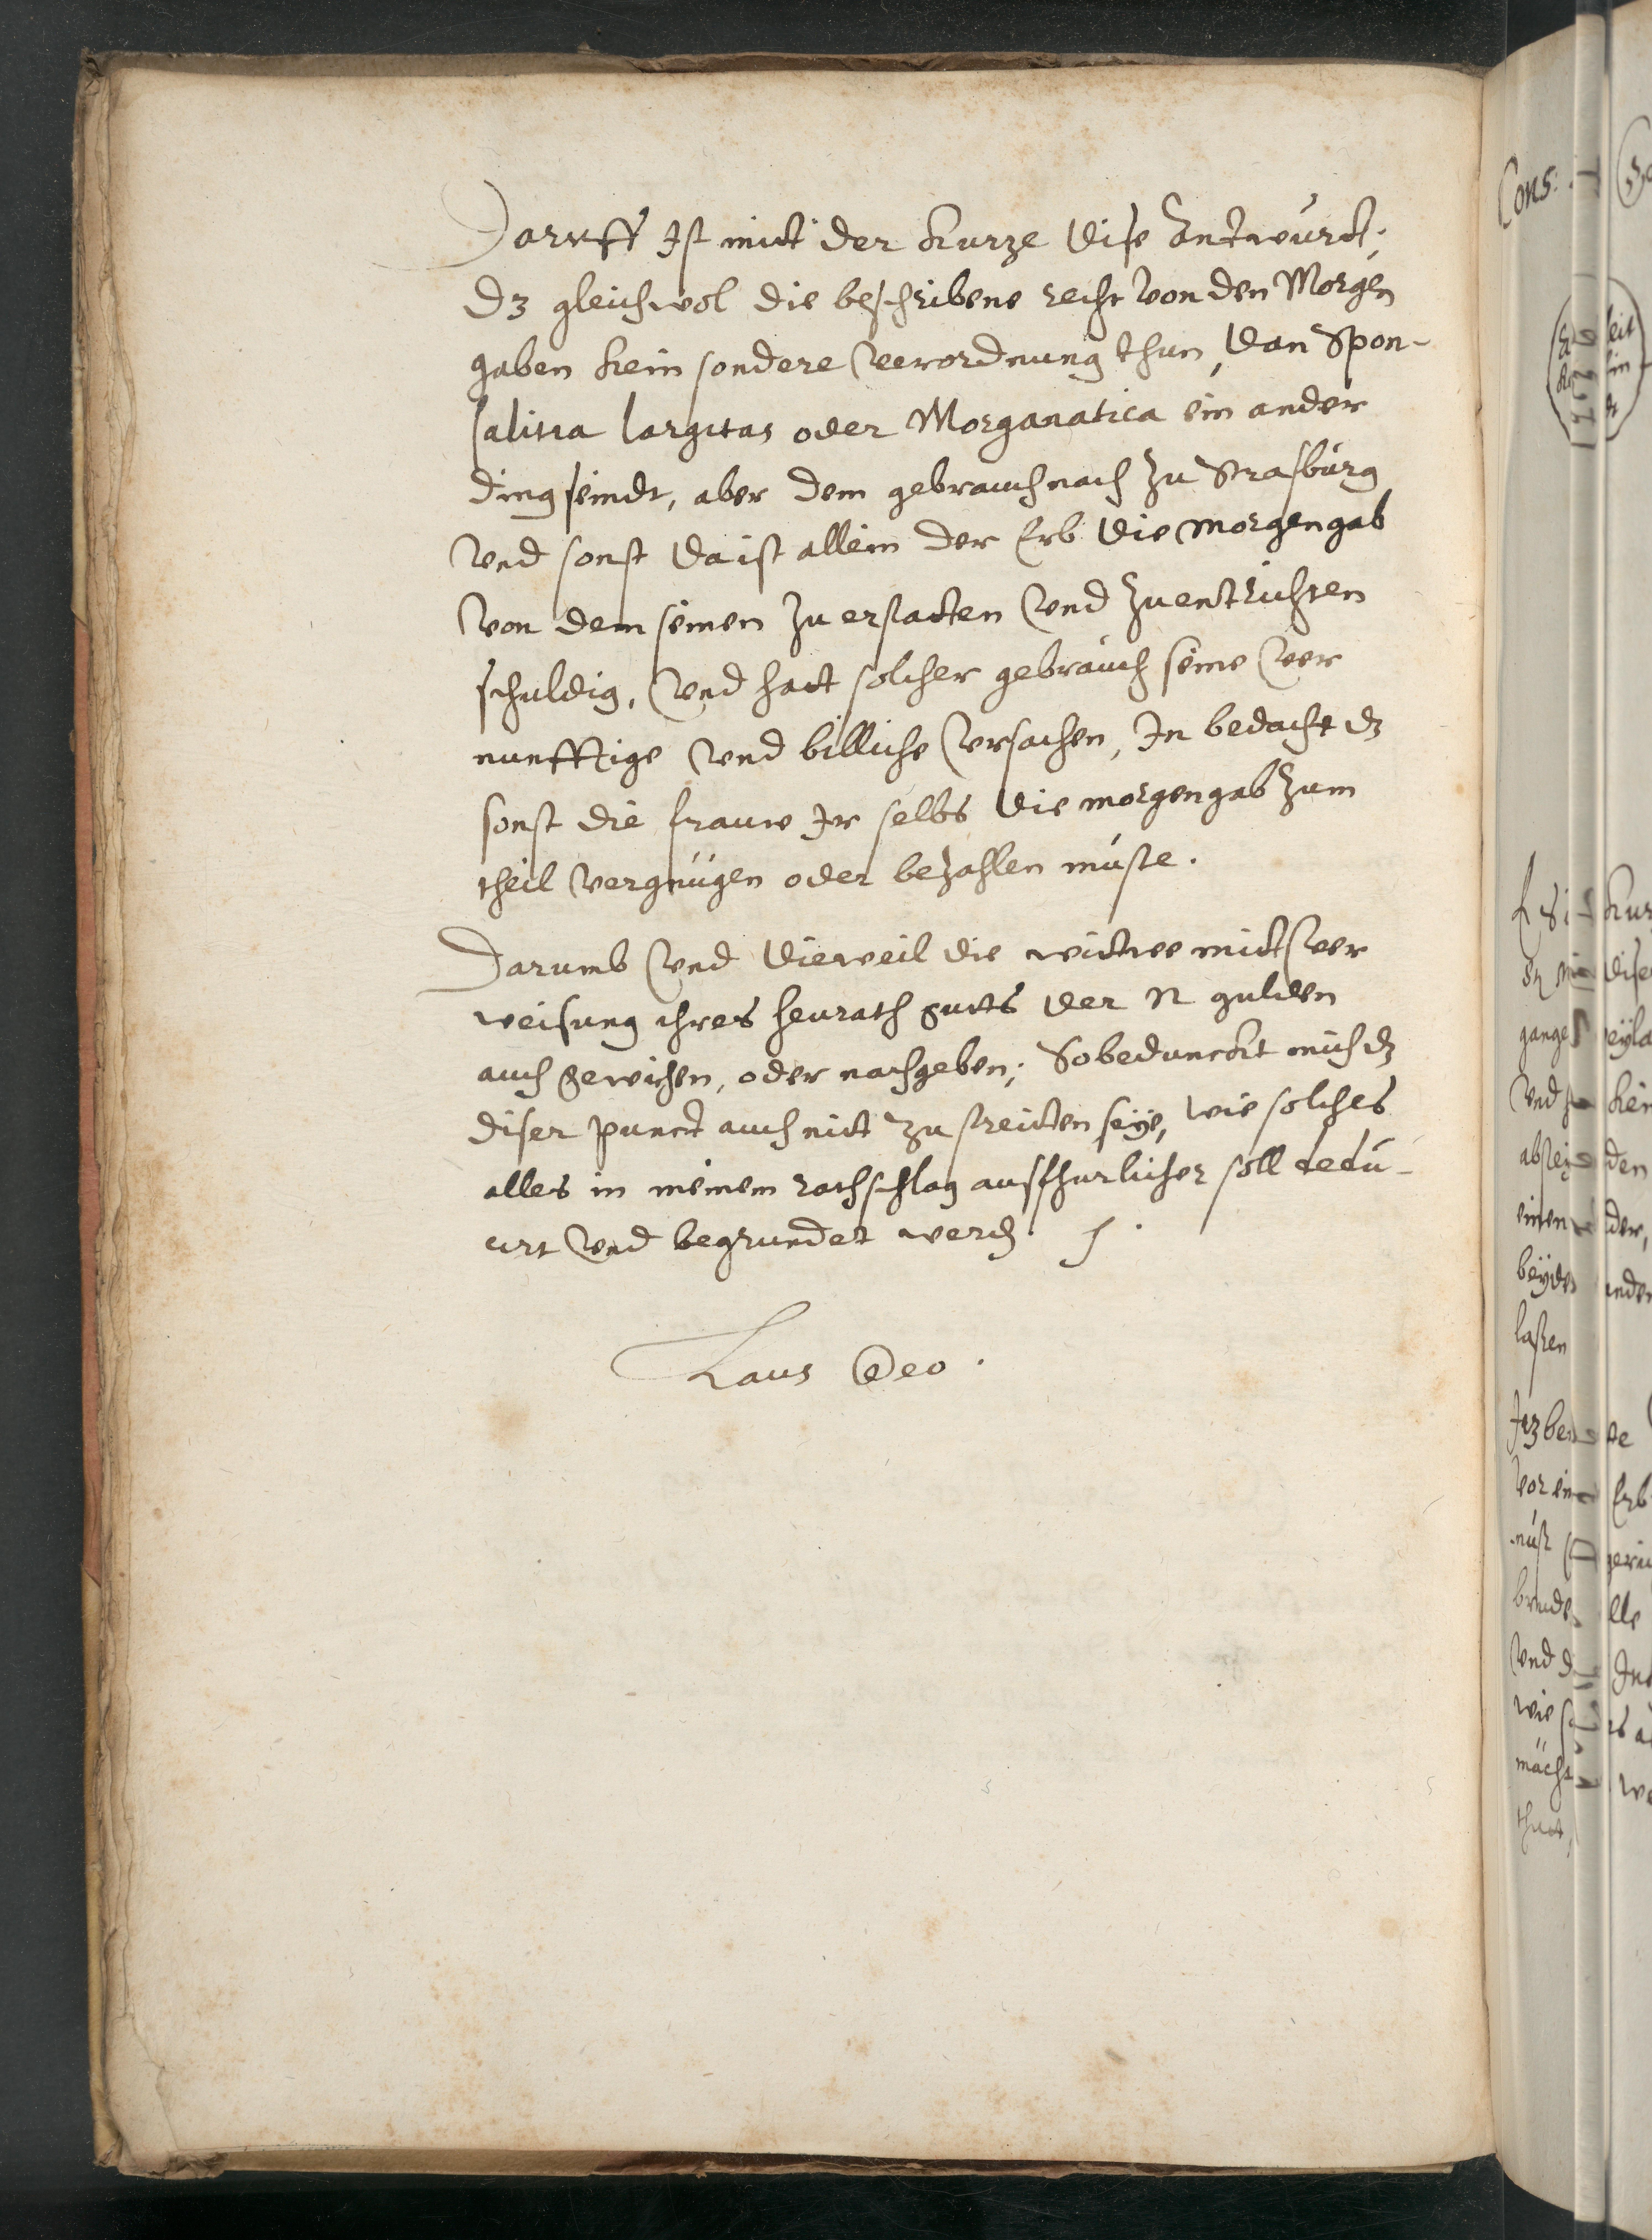 Daruff Ist mitt der kurze dise Andtwurdt;
dz gleichwol die beschribene recht von den Morgen
gaben kein sondere verordnung thun, dan Spon-
salitia largitas oder Morganatica ein ander
ding seindt, aber dem gebrauch nach zu Strasburg
vnd sonst da ist allein der Erb die morgengab
von dem seinen zu erstatten vnd zuentrichten
schuldig, vnd hatt solcher gebrauch seine ver
nunfftige vnd billiche vrsachen, In bedacht dz
sonst die frauw Ir selbs die morgengab zum
theil vergnügen oder bezahlen müste.
Darumb vnd dieweil die wittwe mitt ver
weisung ihres heurath gutts der N gulden
auch gewichen, oder nachgeben; So beduncktt mich dz
diser punct auch nitt zu streitten seye, wie solches
alles in meinem rathschlag ausfhurlicher soll dedu-
cirt vnd begrundet werden.
Laus Deo.
Cons: